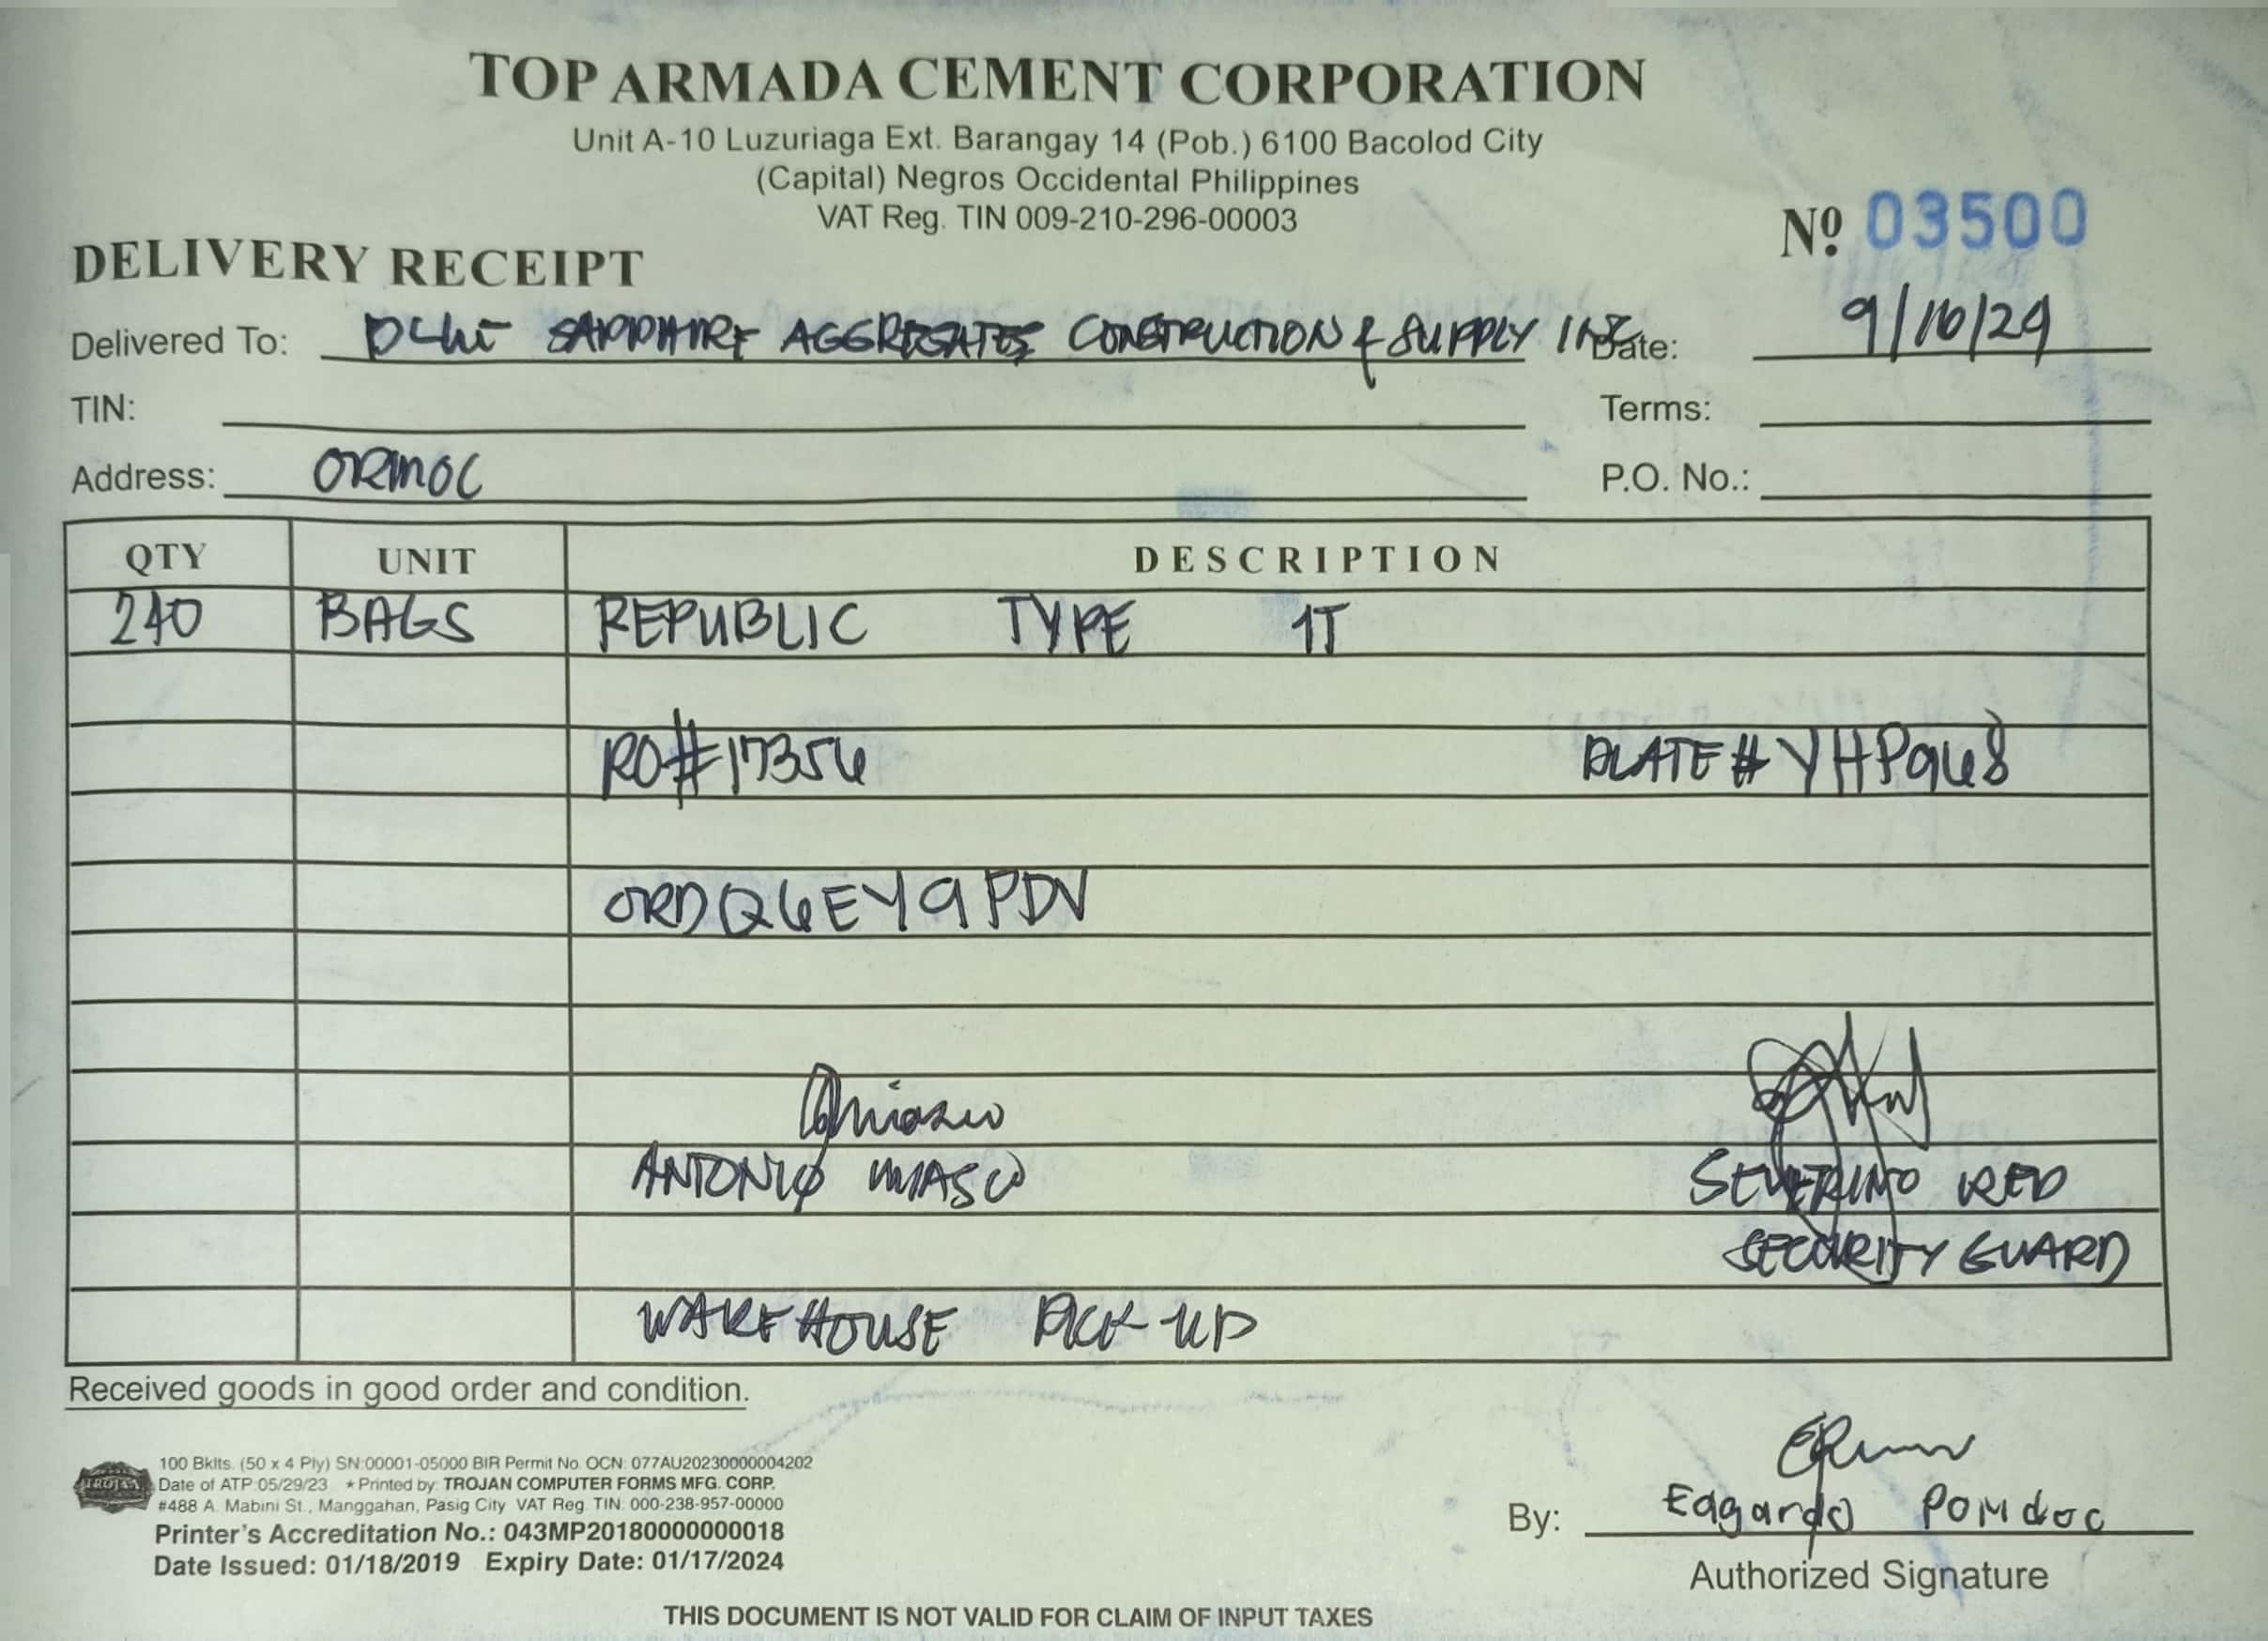 TOP ARMADA CEMENT CORPORATION
Unit A-10 Luzuriaga Ext. Barangay 14 (Pob.) 6100 Bacolod City
(Capital) Negros Occidental Philippines
VAT Reg. TIN 009-210-296-00003
Nº 03500
DELIVERY RECEIPT
Delivered To: SAPPHIRE AGGREGATES CONSTRUCTION & SUPPLY INC Date: 9/10/24
TIN: Terms:
Address: ORMOC P.O. No.:
QTY UNIT DESCRIPTION
240 BAGS REPUBLIC TYPE 1T
RO#17356 PLATE# YHP968
ORDQ6EY9PDV
ANTONIO SEVERINO RED
SECURITY GUARD
WAREHOUSE PICK-UP
Received goods in good order and condition.
100 Bklts. (50 x 4 Ply) SN:00001-05000 BIR Permit No. OCN: 077AU20230000004202
Date of ATP:05/29/23 ★Printed by: TROJAN COMPUTER FORMS MFG. CORP.
TROJAN
#488 A. Mabini St., Manggahan, Pasig City VAT Reg. TIN: 000-238-957-00000
Printer's Accreditation No.: 043MP20180000000018
Date Issued: 01/18/2019 Expiry Date: 01/17/2024
By: Edgardo Pomdoc
Authorized Signature
THIS DOCUMENT IS NOT VALID FOR CLAIM OF INPUT TAXES